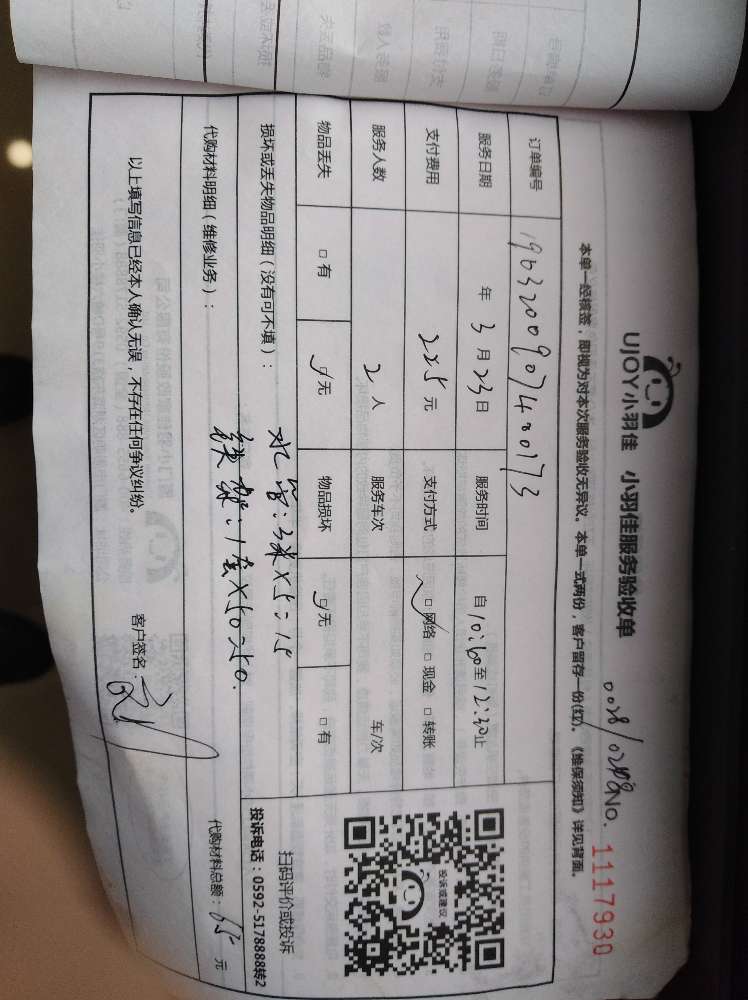 UJOY小羽佳 小羽佳服务验收单
No. 1117930
本单一经核签，即视为对本次服务验收无异议。本单一式两份，客户留存一份(红)。《维保须知》详见背面。
订单编号
服务日期 年 3 月 23 日 服务时间 自 10:00 至 12:30 止
支付费用 225 元 支付方式 □网络 □现金 □转账
服务人数 2 人 服务车次 车/次
物品丢失 □有 □无 物品损坏 □无 □有
损坏或丢失物品明细（没有可不填）：
水管:3米×5=15
代购材料明细（维修业务）：
铁架:1套×50=50.
代购材料总额: 65 元
以上填写信息已经本人确认无误，不存在任何争议纠纷。
客户签名:
投诉或建议
扫码评价或投诉
投诉电话：0592-5178888转2